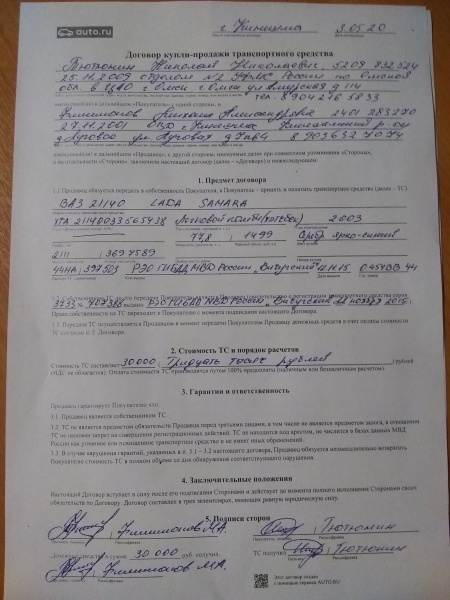 auto.ru
г. Кинешма 3.05.20
Договор купли-продажи транспортного средства
Тютюнин Николай Николаевич, 5209 832524
25.11.2009 отделом №2 УФМС России по Омской
обл. в г. Омск ул. Амурская д 114
тел. 8904 216 5833
именуемый(ая) в дальнейшем «Покупатель», с одной стороны, и
Филимонов Михаил Александрович 2401 283270
27.11.2001 г. Кинешма Кинешемский р-он
ул. Луговая 8 903 632 70 74
именуемый(ая) в дальнейшем «Продавец», с другой стороны, именуемые далее при совместном упоминании «Стороны»,
а по отдельности «Сторона», заключили настоящий договор (далее – «Договор») о нижеследующем:
1. Предмет договора
1.1 Продавец обязуется передать в собственность Покупателя, а Покупатель – принять и оплатить транспортное средство (далее – ТС):
ВАЗ 21140 LADA SAMARA
XTA 21140033565438 Легковой комби (хэтчбек) 2003
77,8 1499 Сребр. ярко-синий
2111 3697589
44НА 397503 РЭО ГИБДД МВД России „Вичугский" 12.11.15 О454ВВ 44
3733 РЭО ГИБДД МВД России „Вичугский"
Право собственности на ТС переходит к Покупателю с момента подписания настоящего Договора.
1.3 Передача ТС осуществляется Продавцом в момент передачи Покупателем Продавцу денежных средств в счет оплаты стоимости ТС
согласно п. 2 Договора.
2. Стоимость ТС и порядок расчетов
Стоимость ТС составляет 30000 Тридцать тысяч рублей рублей
(НДС не облагается). Оплата стоимости ТС производится путем 100% предоплаты (наличным или безналичным расчетом).
3. Гарантии и ответственность
Продавец гарантирует Покупателю что:
3.1. Продавец является собственником ТС
3.2 ТС не является предметом обязательств Продавца перед третьими лицами, в том числе не является предметом залога, в отношении
ТС не наложен запрет на совершение регистрационных действий, ТС не находится под арестом, не числится в базах данных МВД
России как угнанное или похищенное транспортное средство и не имеет иных обременений.
3.3. В случае нарушения гарантий, указанных в п. 3.1 – 3.2 настоящего договора, Продавец обязуется незамедлительно возвратить
Покупателю стоимость ТС в полном объеме со дня обнаружения соответствующего нарушения.
4. Заключительные положения
Настоящий Договор вступает в силу после его подписания Сторонами и действует до момента полного исполнения Сторонами своих
обязательств по Договору. Договор составлен в трех экземплярах, имеющих равную юридическую силу.
5. Подписи сторон
Филимонов М.А. Тютюнин
Денежные средства в сумме 30 000 руб. получил. ТС получил Тютюнин
Филимонов М.А.
Этот договор создан
с помощью сервиса AUTO.RU